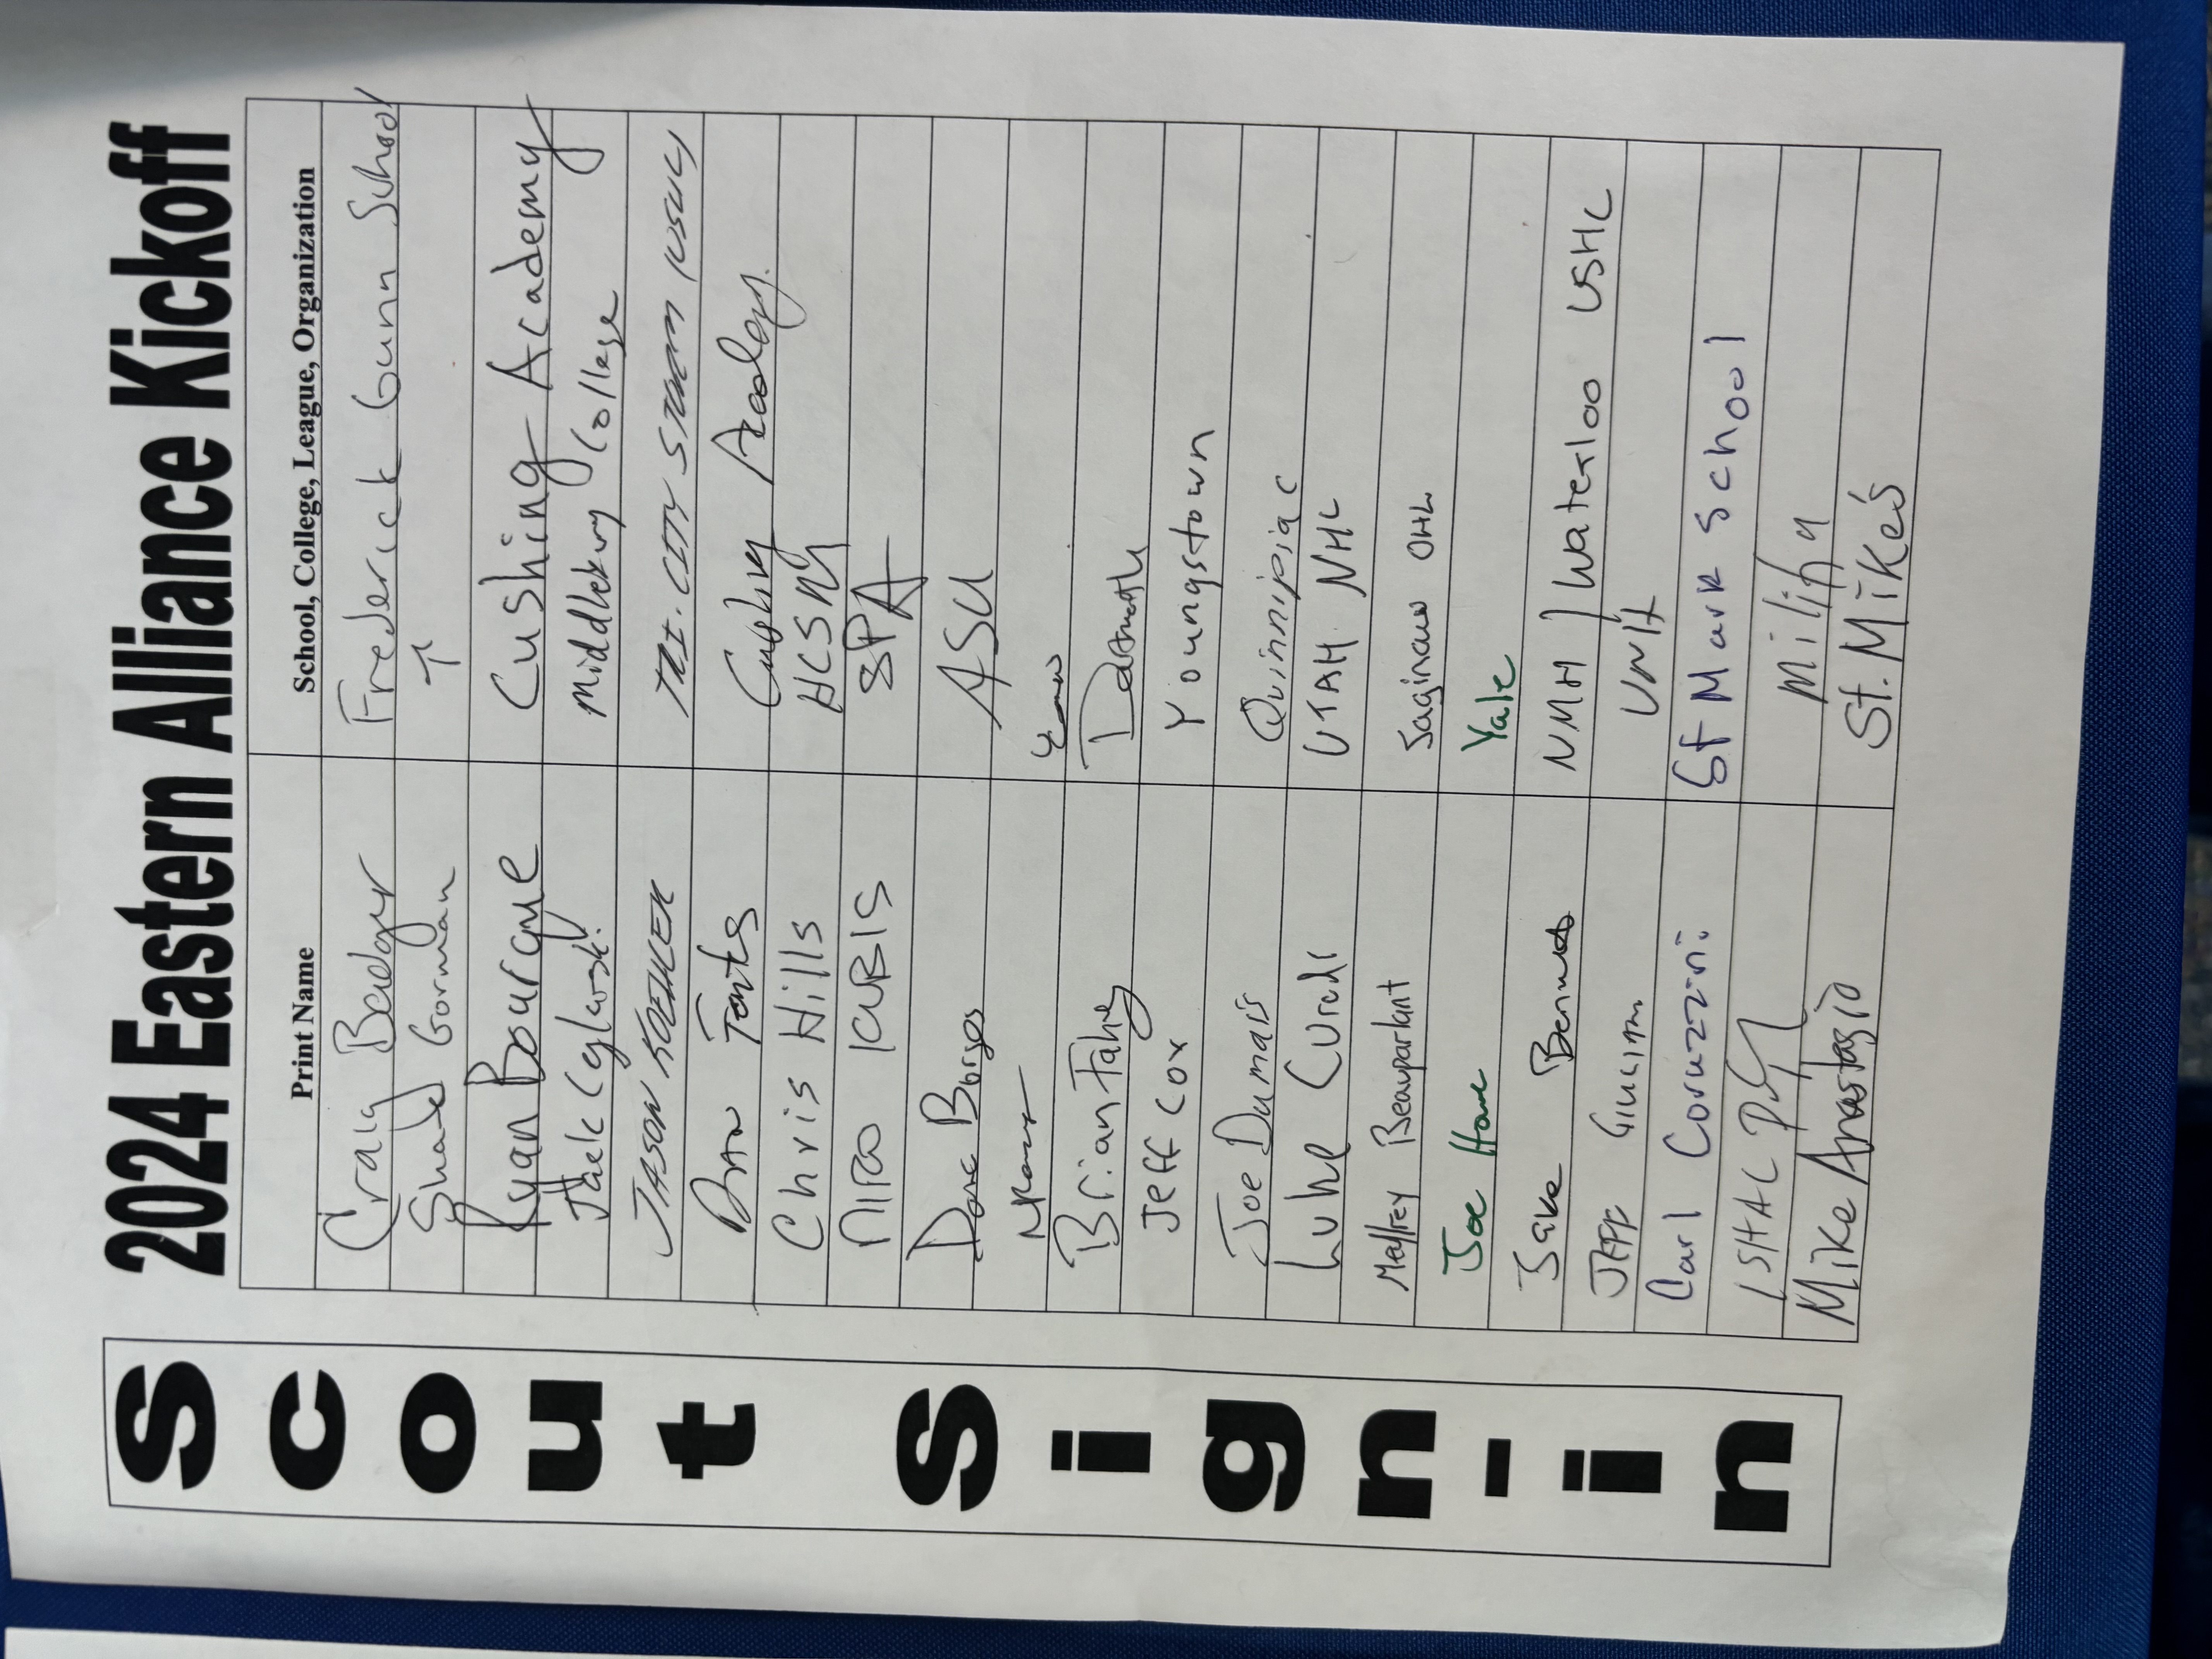 2024 Eastern Alliance Kickoff
Scout Sign-in
Print Name School, College, League, Organization
Craig Badger Frederick Gunn School
Gorman ↑
Ryan Bourque Cushing Academy
Jack Ceglarski Middlebury College
JASON KOEHLER TRI-CITY STORM (USHL)
DAN Cushing Academy
Chris Hills HCSNY
NIRO KUBIS SPA
Dane Borges ASU
Brian Fahey Dartmouth
Jeff Cox Youngstown
Joe Dumais Quinnipiac
Luke Curadi UTAH NHL
Maffrey Beauparlant Saginaw OHL
Joe Howe Yale
Jake Bennett NMH / Waterloo USHL
JEFF UNH
Carl Coruzzini St Mark School
ISHAC
Mike Anastasio St. Mike's